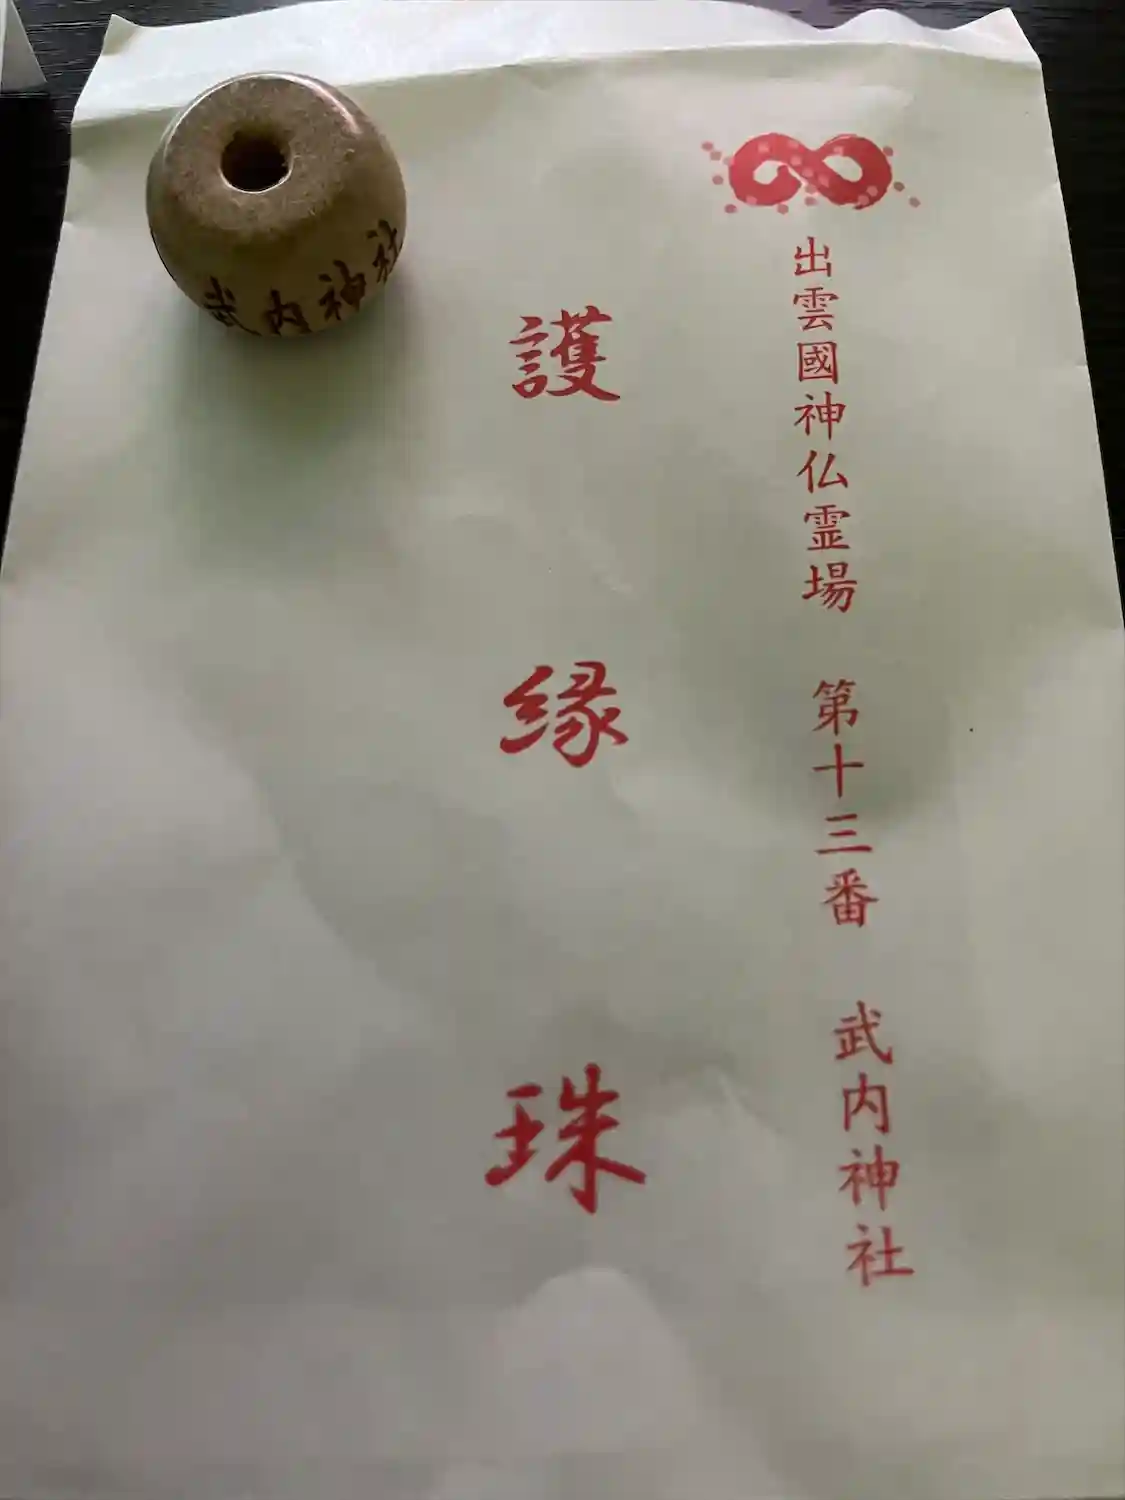 出雲國神仏霊場 第十三番 武内神社
護縁珠
武内神社